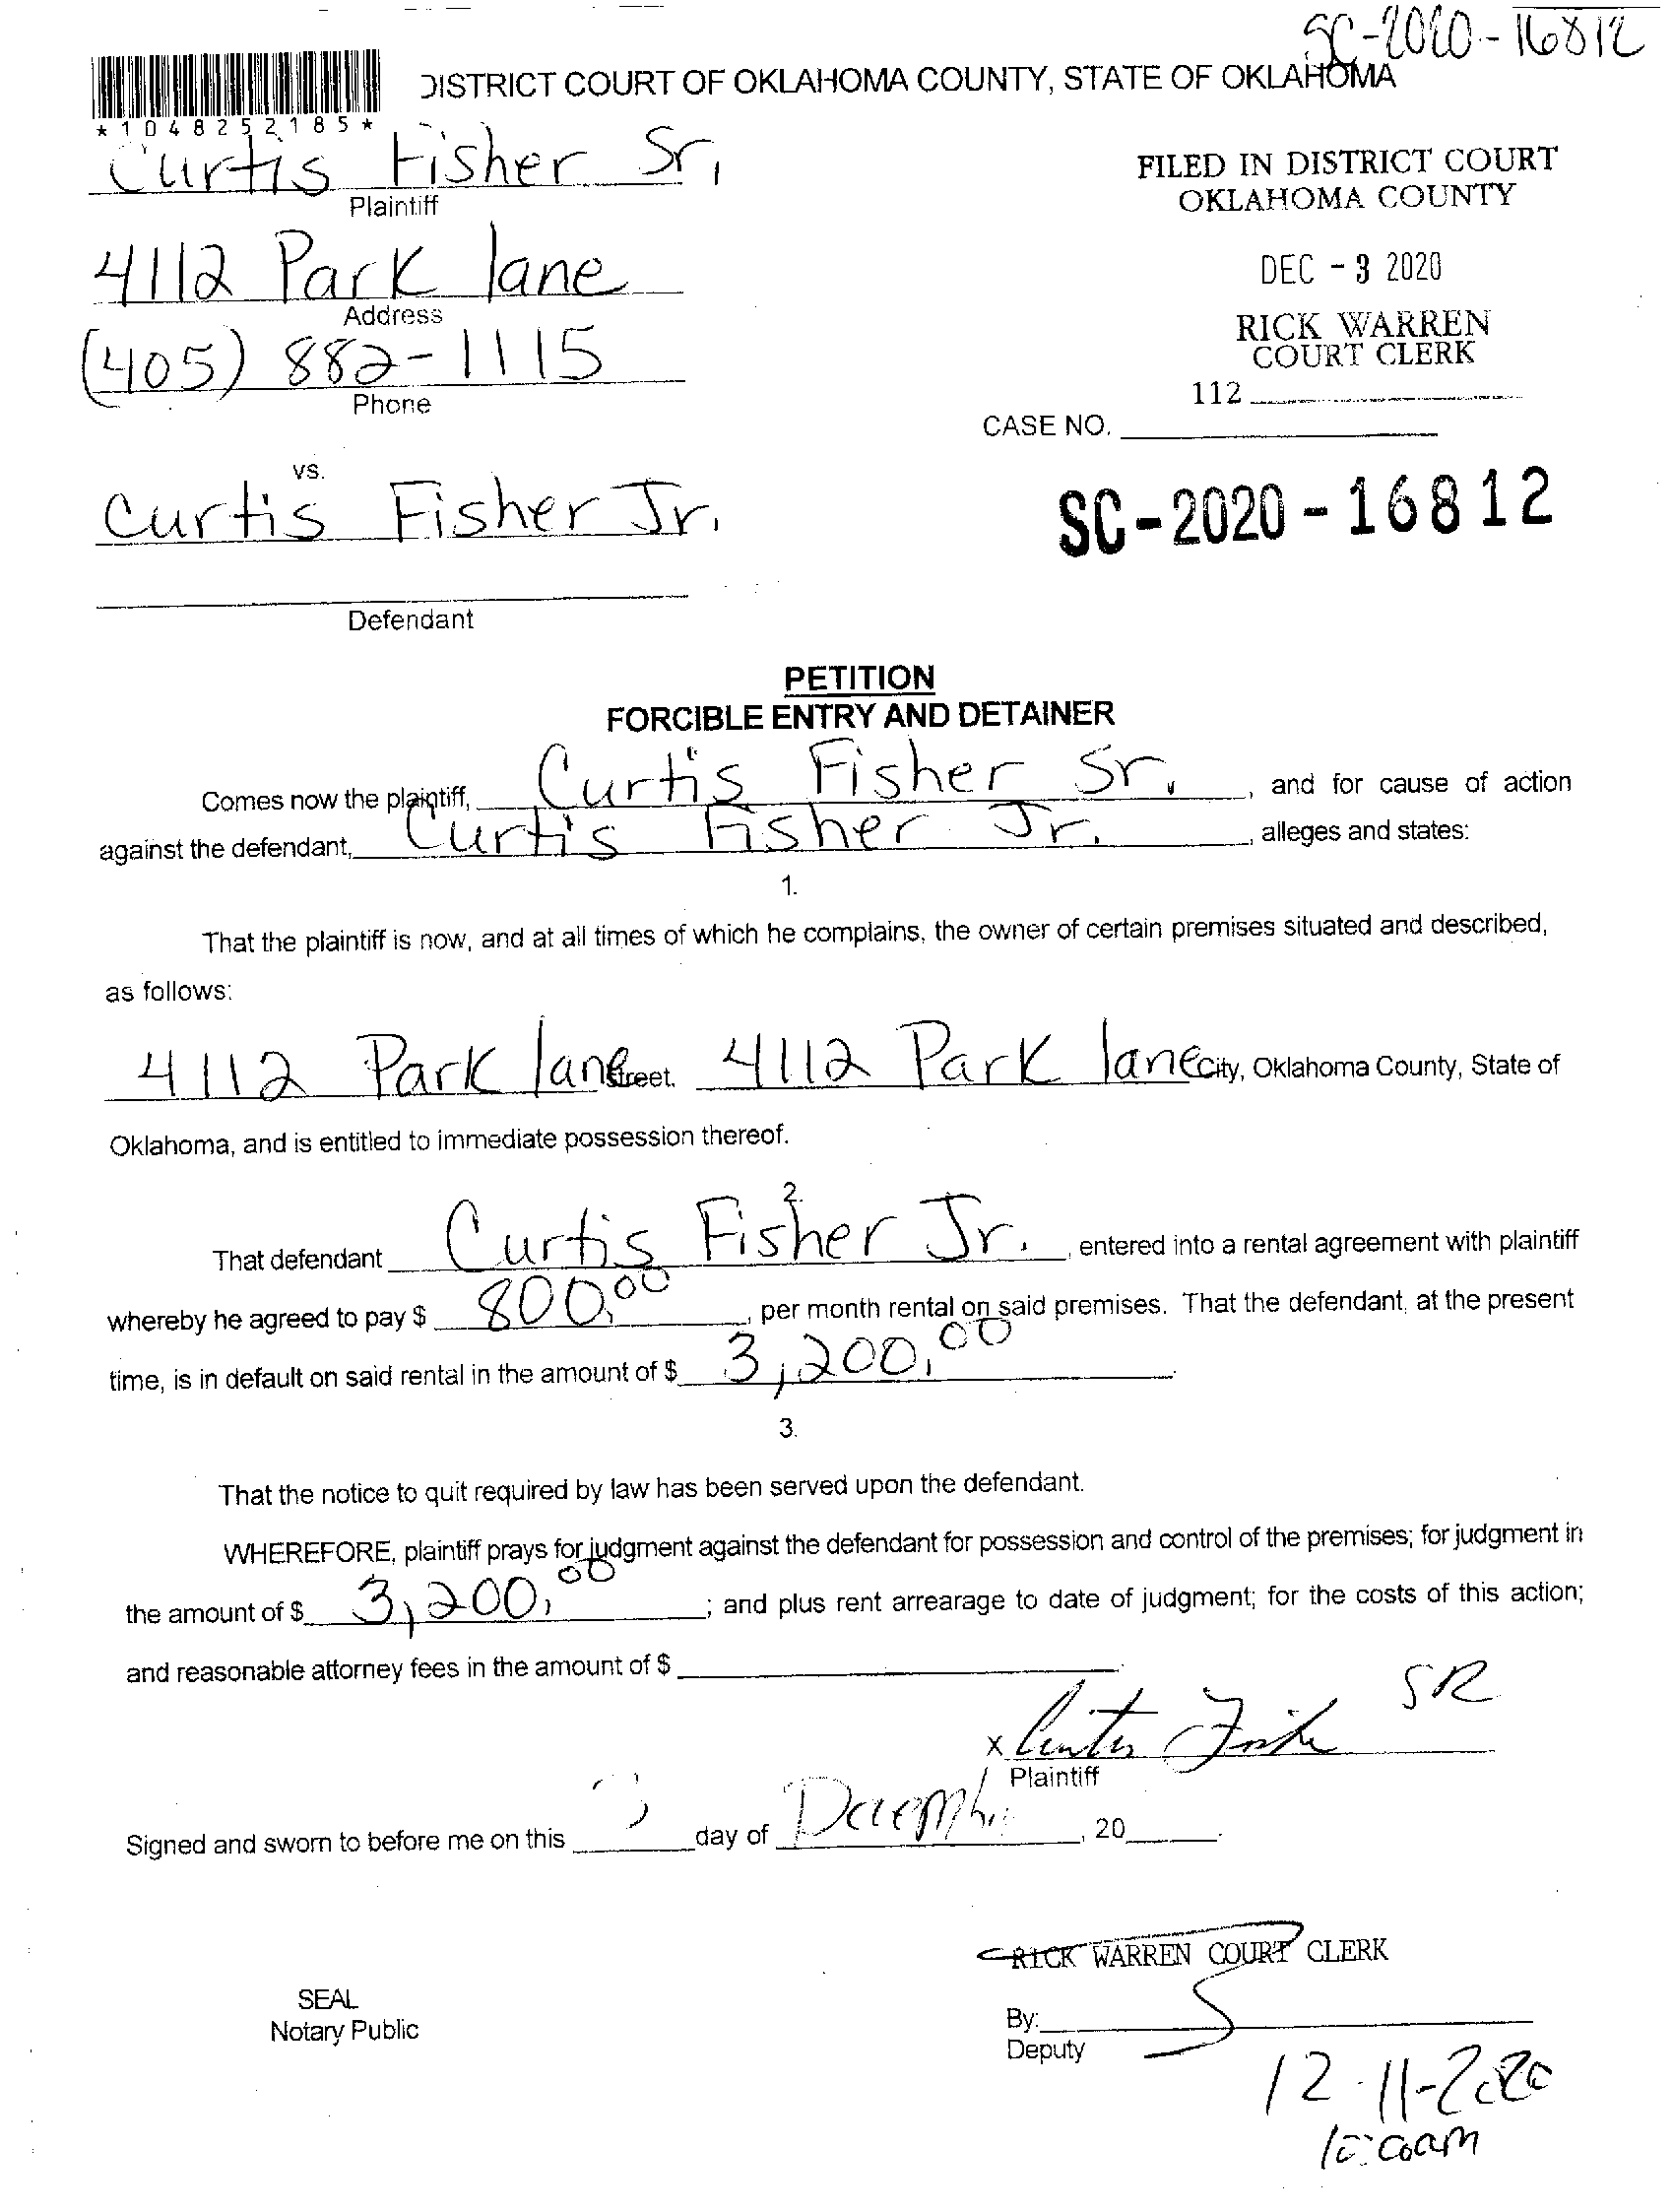 SC-2020-16812
DISTRICT COURT OF OKLAHOMA COUNTY, STATE OF OKLAHOMA
*1048252185*
Curtis Fisher Sr.
Plaintiff
4112 Park lane
Address
(405) 882-1115
Phone
FILED IN DISTRICT COURT
OKLAHOMA COUNTY
DEC - 3 2020
RICK WARREN
COURT CLERK
112
CASE NO.
SC-2020-16812
vs.
Curtis Fisher Jr.
Defendant
PETITION
FORCIBLE ENTRY AND DETAINER
Comes now the plaintiff, Curtis Fisher Sr., and for cause of action
against the defendant, Curtis Fisher Jr., alleges and states:
1.
That the plaintiff is now, and at all times of which he complains, the owner of certain premises situated and described,
as follows:
4112 Park lane Street. 4112 Park lane City, Oklahoma County, State of
Oklahoma, and is entitled to immediate possession thereof.
2.
That defendant Curtis Fisher Jr., entered into a rental agreement with plaintiff
whereby he agreed to pay $ 800.00, per month rental on said premises. That the defendant, at the present
time, is in default on said rental in the amount of $ 3,200.00.
3.
That the notice to quit required by law has been served upon the defendant.
WHEREFORE, plaintiff prays for judgment against the defendant for possession and control of the premises; for judgment in
the amount of $ 3,200.00; and plus rent arrearage to date of judgment; for the costs of this action;
and reasonable attorney fees in the amount of $
x Curtis Fisher SR
Plaintiff
Signed and sworn to before me on this day of December, 20
RICK WARREN COURT CLERK
SEAL
Notary Public
By:
Deputy
12-11-2020
10:00am